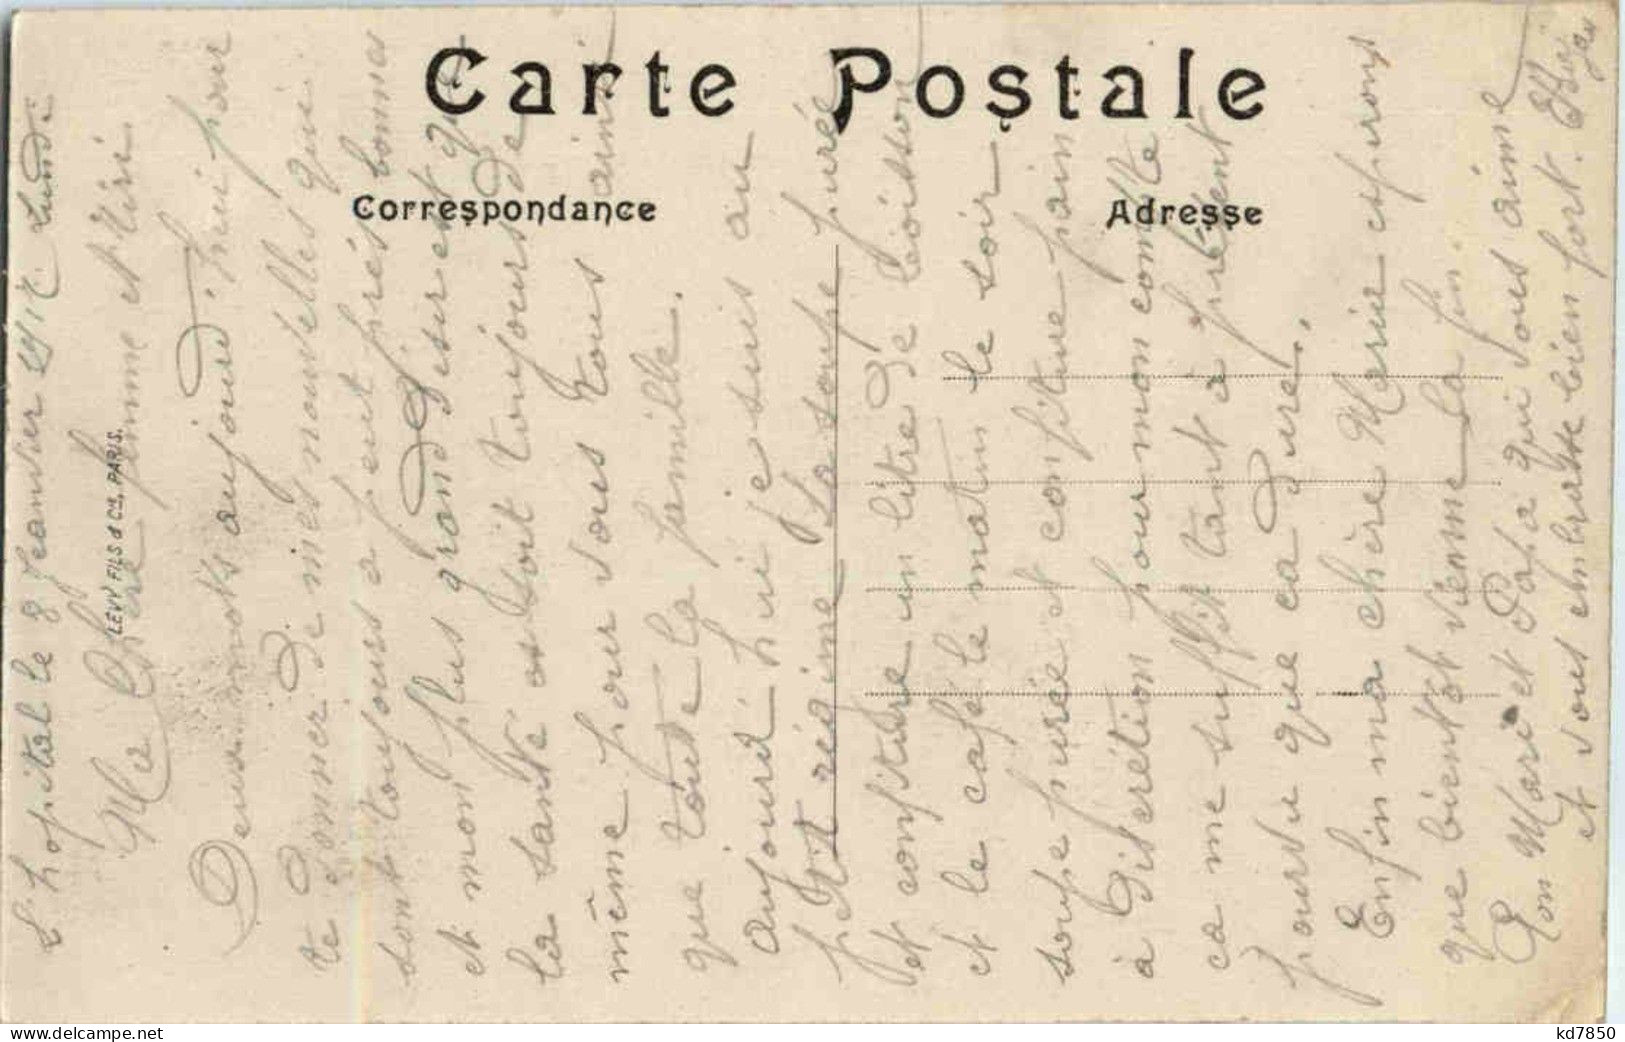 Carte Postale
Correspondance
Adresse
LEVY FILS & Cie, PARIS.
L'hopital le 8 Jeanvier 1917 Lundi
Ma Chère femme et Mimi
Deux mots aujourd'hui pour
te donner de mes nouvelles qui
sont toujours a peut près bonnes
et mon plus grand desire est que
la santé soit toujours de
même pour vous tous ainsi
que toute la famille.
Aujourd'hui je suis au
petit régime la soupe purée
et confiture un litre de boisson
et le café le matin le soir
soupe purée et confiture pain
à discrétion pour mon compte
ça me suffit tant à présent
pourvu que ca dure.
Enfin ma chère Marie esperons
que bientôt vienne la fin
Ton Mari et Papa qui vous aime
et vous embrasse bien fort.
kd7850
www.delcampe.net